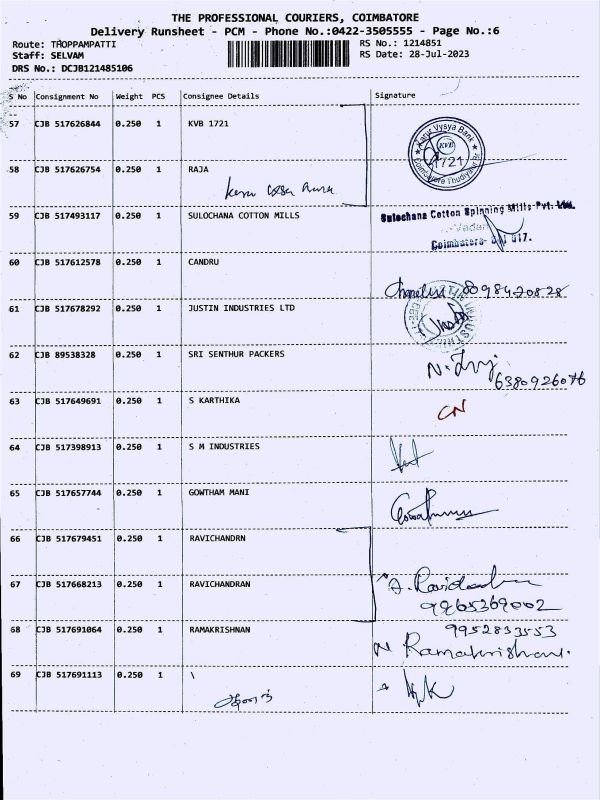 THE PROFESSIONAL COURIERS, COIMBATORE
Delivery Runsheet - PCM - Phone No.:0422-3505555 - Page No.:6
Route: THOPPAMPATTI
RS No.: 1214851
Staff: SELVAM
RS Date: 28-Jul-2023
DRS No.: DCJB121485106
S No Consignment No Weight PCS Consignee Details Signature
57 CJB 517626844 0.250 1 KVB 1721
Karur Vysya Bank
1721
58 CJB 517626754 0.250 1 RAJA
59 CJB 517493117 0.250 1 SULOCHANA COTTON MILLS
Sulochana Cotton Spinning Mills Pvt. Ltd.
60 CJB 517612578 0.250 1 CANDRU
8098420828
61 CJB 517678292 0.250 1 JUSTIN INDUSTRIES LTD
62 CJB 89538328 0.250 1 SRI SENTHUR PACKERS
6380926076
63 CJB 517649691 0.250 1 S KARTHIKA
CN
64 CJB 517398913 0.250 1 S M INDUSTRIES
65 CJB 517657744 0.250 1 GOWTHAM MANI
66 CJB 517679451 0.250 1 RAVICHANDRN
67 CJB 517668213 0.250 1 RAVICHANDRAN
9865369002
68 CJB 517691064 0.250 1 RAMAKRISHNAN
9952833553
N Ramakrishnan.
69 CJB 517691113 0.250 1 \